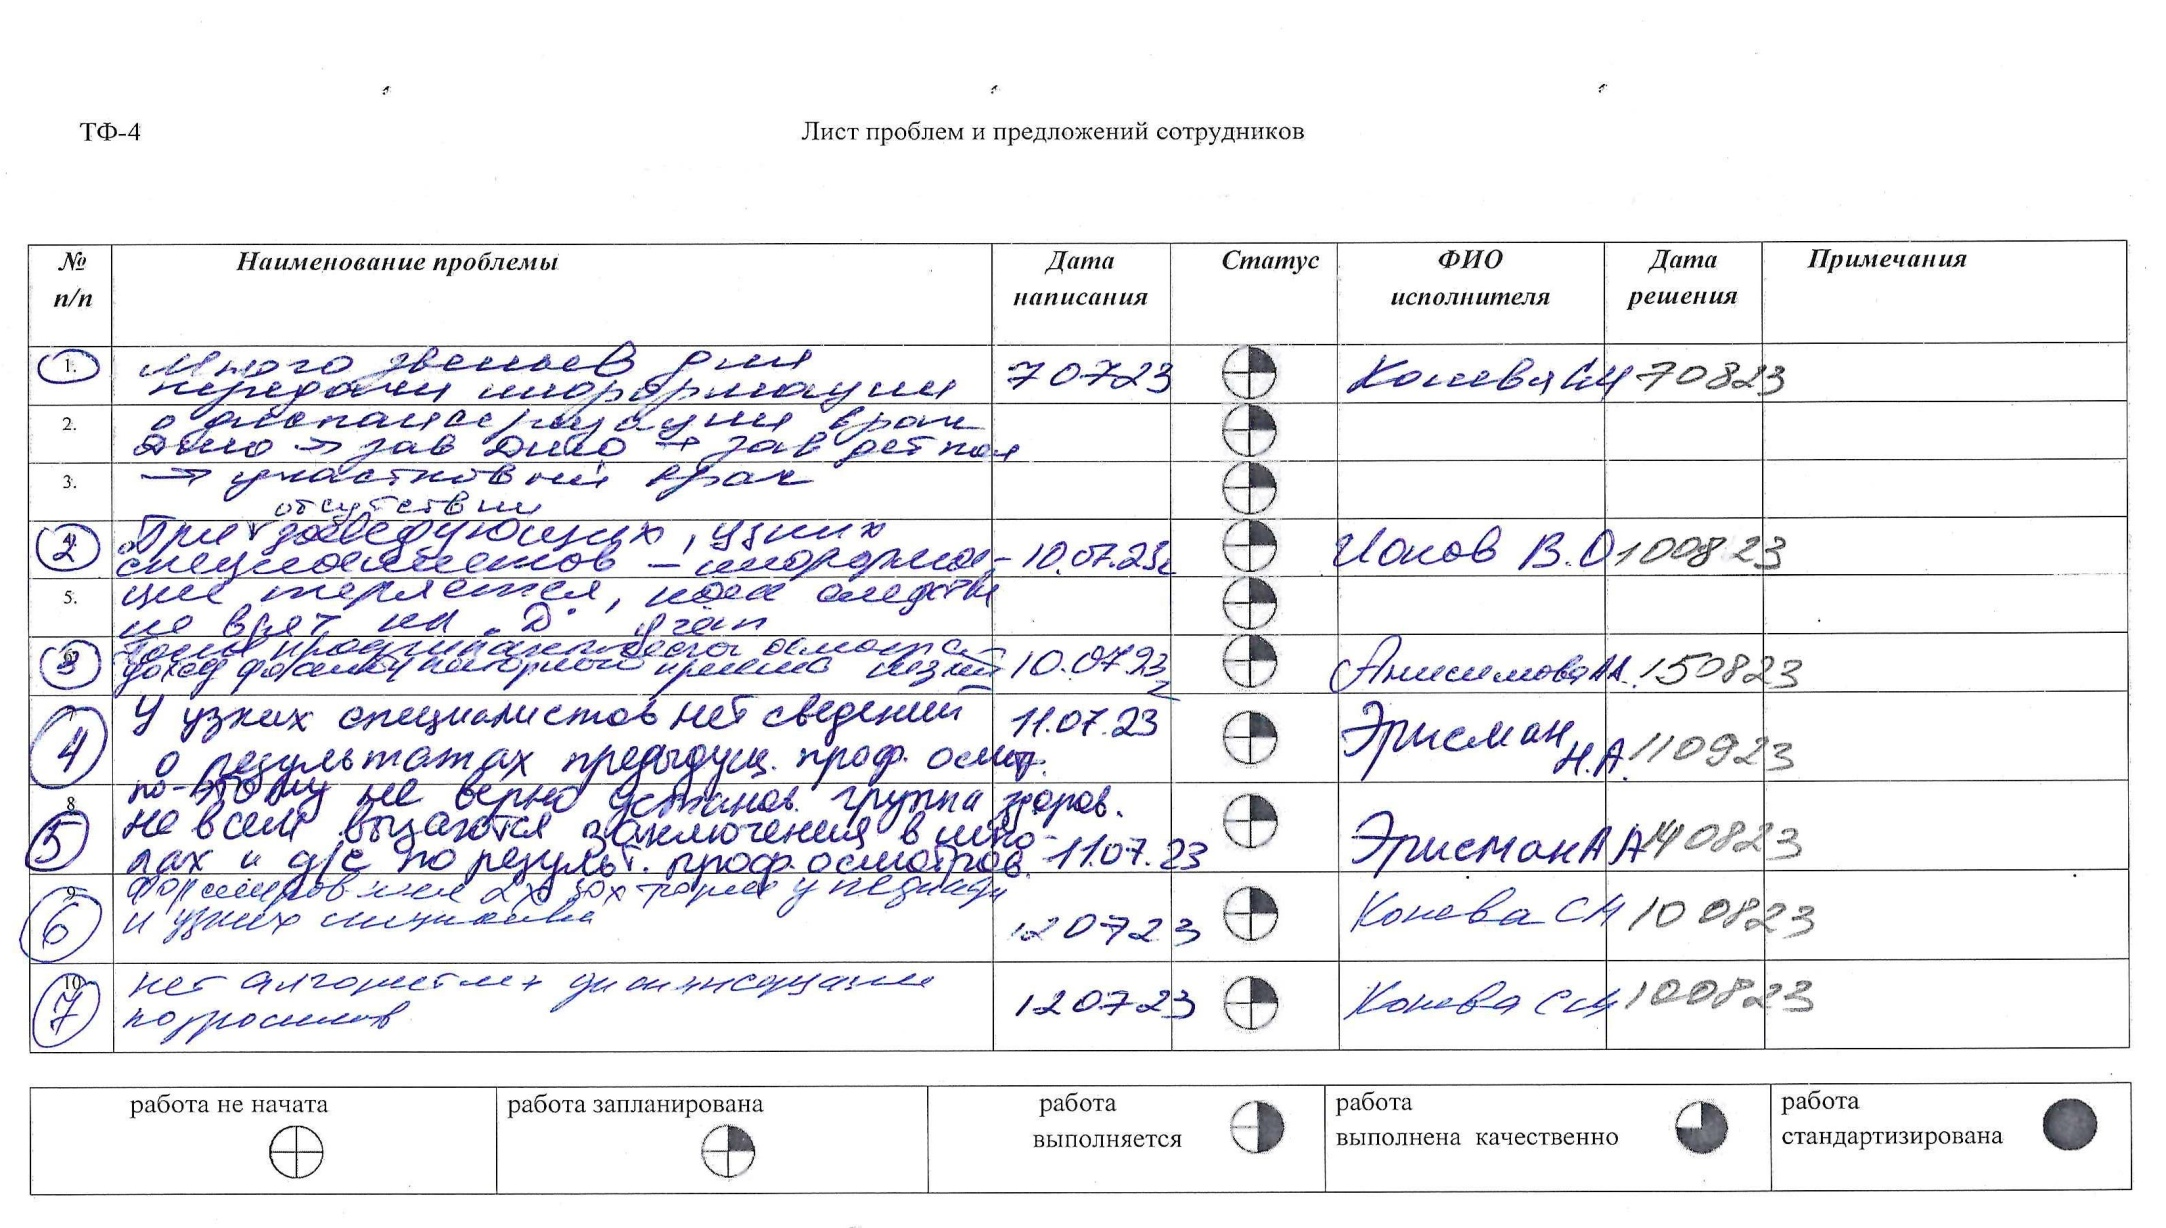 ТФ-4
Лист проблем и предложений сотрудников
№ п/п
Наименование проблемы
Дата написания
Статус
ФИО исполнителя
Дата решения
Примечания
1.
Много звеньев для
передачи информации
70723
Конева СМ
70823
2.
о диспансеризации врач
ДШО → зав ДШО → зав дет пол
3.
→ участковый врач
отсутствии
2
При заведующих, узких
специалистов – информа-
10.07.23г
Ионов В.О
100823
5.
ция теряется,
не
3
После профилактического осмотра
повторного приема
10.07.23г
Анисимова
150823
4
У узких специалистов нет сведений
о результатах предыдущ. проф. осмотр.
11.07.23
Эрисман Н.А.
110923
8
по-этому не верно установ. группа здоров.
5
не всем выдаются заключения в шко-
лах и д/с по результ. проф. осмотров.
11.07.23
Эрисман А А
140823
6
и узких
120723
Конева СМ
100823
10
7
нет алгоритма диспансеризации
подростков
120723
Конева СМ
100823
работа не начата
работа запланирована
работа
выполняется
работа
выполнена качественно
работа
стандартизирована